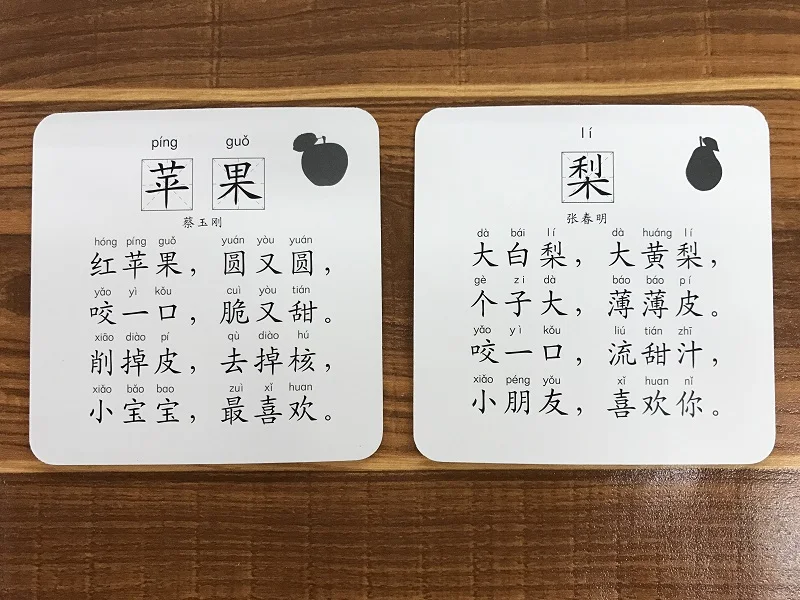 píng guǒ
苹果
蔡玉刚
hóng píng guǒ yuán yòu yuán
红苹果，圆又圆，
yǎo yì kǒu cuì yòu tián
咬一口，脆又甜。
xiāo diào pí qù diào hú
削掉皮，去掉核，
xiǎo bǎo bao zuì xǐ huan
小宝宝，最喜欢。
lí
梨
张春明
dà bái lí dà huáng lí
大白梨，大黄梨，
gè zi dà báo báo pí
个子大，薄薄皮。
yǎo yì kǒu liú tián zhī
咬一口，流甜汁，
xiǎo péng yǒu xǐ huan nǐ
小朋友，喜欢你。